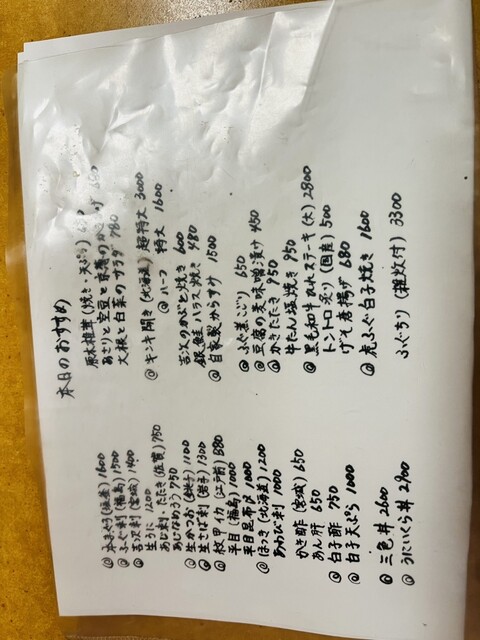 本日のおすすめ
◎本まぐろ(塩釜) 1600
◎ふぐ刺(福島) 1500
◎吉次刺(宮城) 1400
生うに 1200
あじ刺・たたき(佐賀) 750
あじなめろう 750
◎生かつお(銚子) 1100
◎生さば刺(岩手) 1300
◎紋甲イカ(江戸前) 880
平目(福島) 1000
平目昆布〆 1000
◎ほっき(北海道) 1200
あわび刺 1000
かき酢(宮城) 650
あん肝 650
◎白子酢 750
◎白子天ぷら 1000
◎三色丼 2600
◎うにいくら丼 2900
原木椎茸(焼き・天ぷら)
あさりと空豆と
大根と白菜のサラダ 780
◎キンキ開き(北海道) 超特大 3000
◎ハーフ 特大 1600
吉次のかぶと焼き 600
銀鮭ハラス焼き 480
◎自家製からすみ 1500
◎ふぐ煮こごり 650
◎豆腐の味噌漬け 450
◎かきたたき 950
牛たん塩焼き 950
◎黒毛和牛ヒレステーキ(大) 2800
トントロ炙り(国産) 500
げそ唐揚げ 680
◎虎ふぐ白子焼き 1600
ふぐちり (雑炊付) 3300